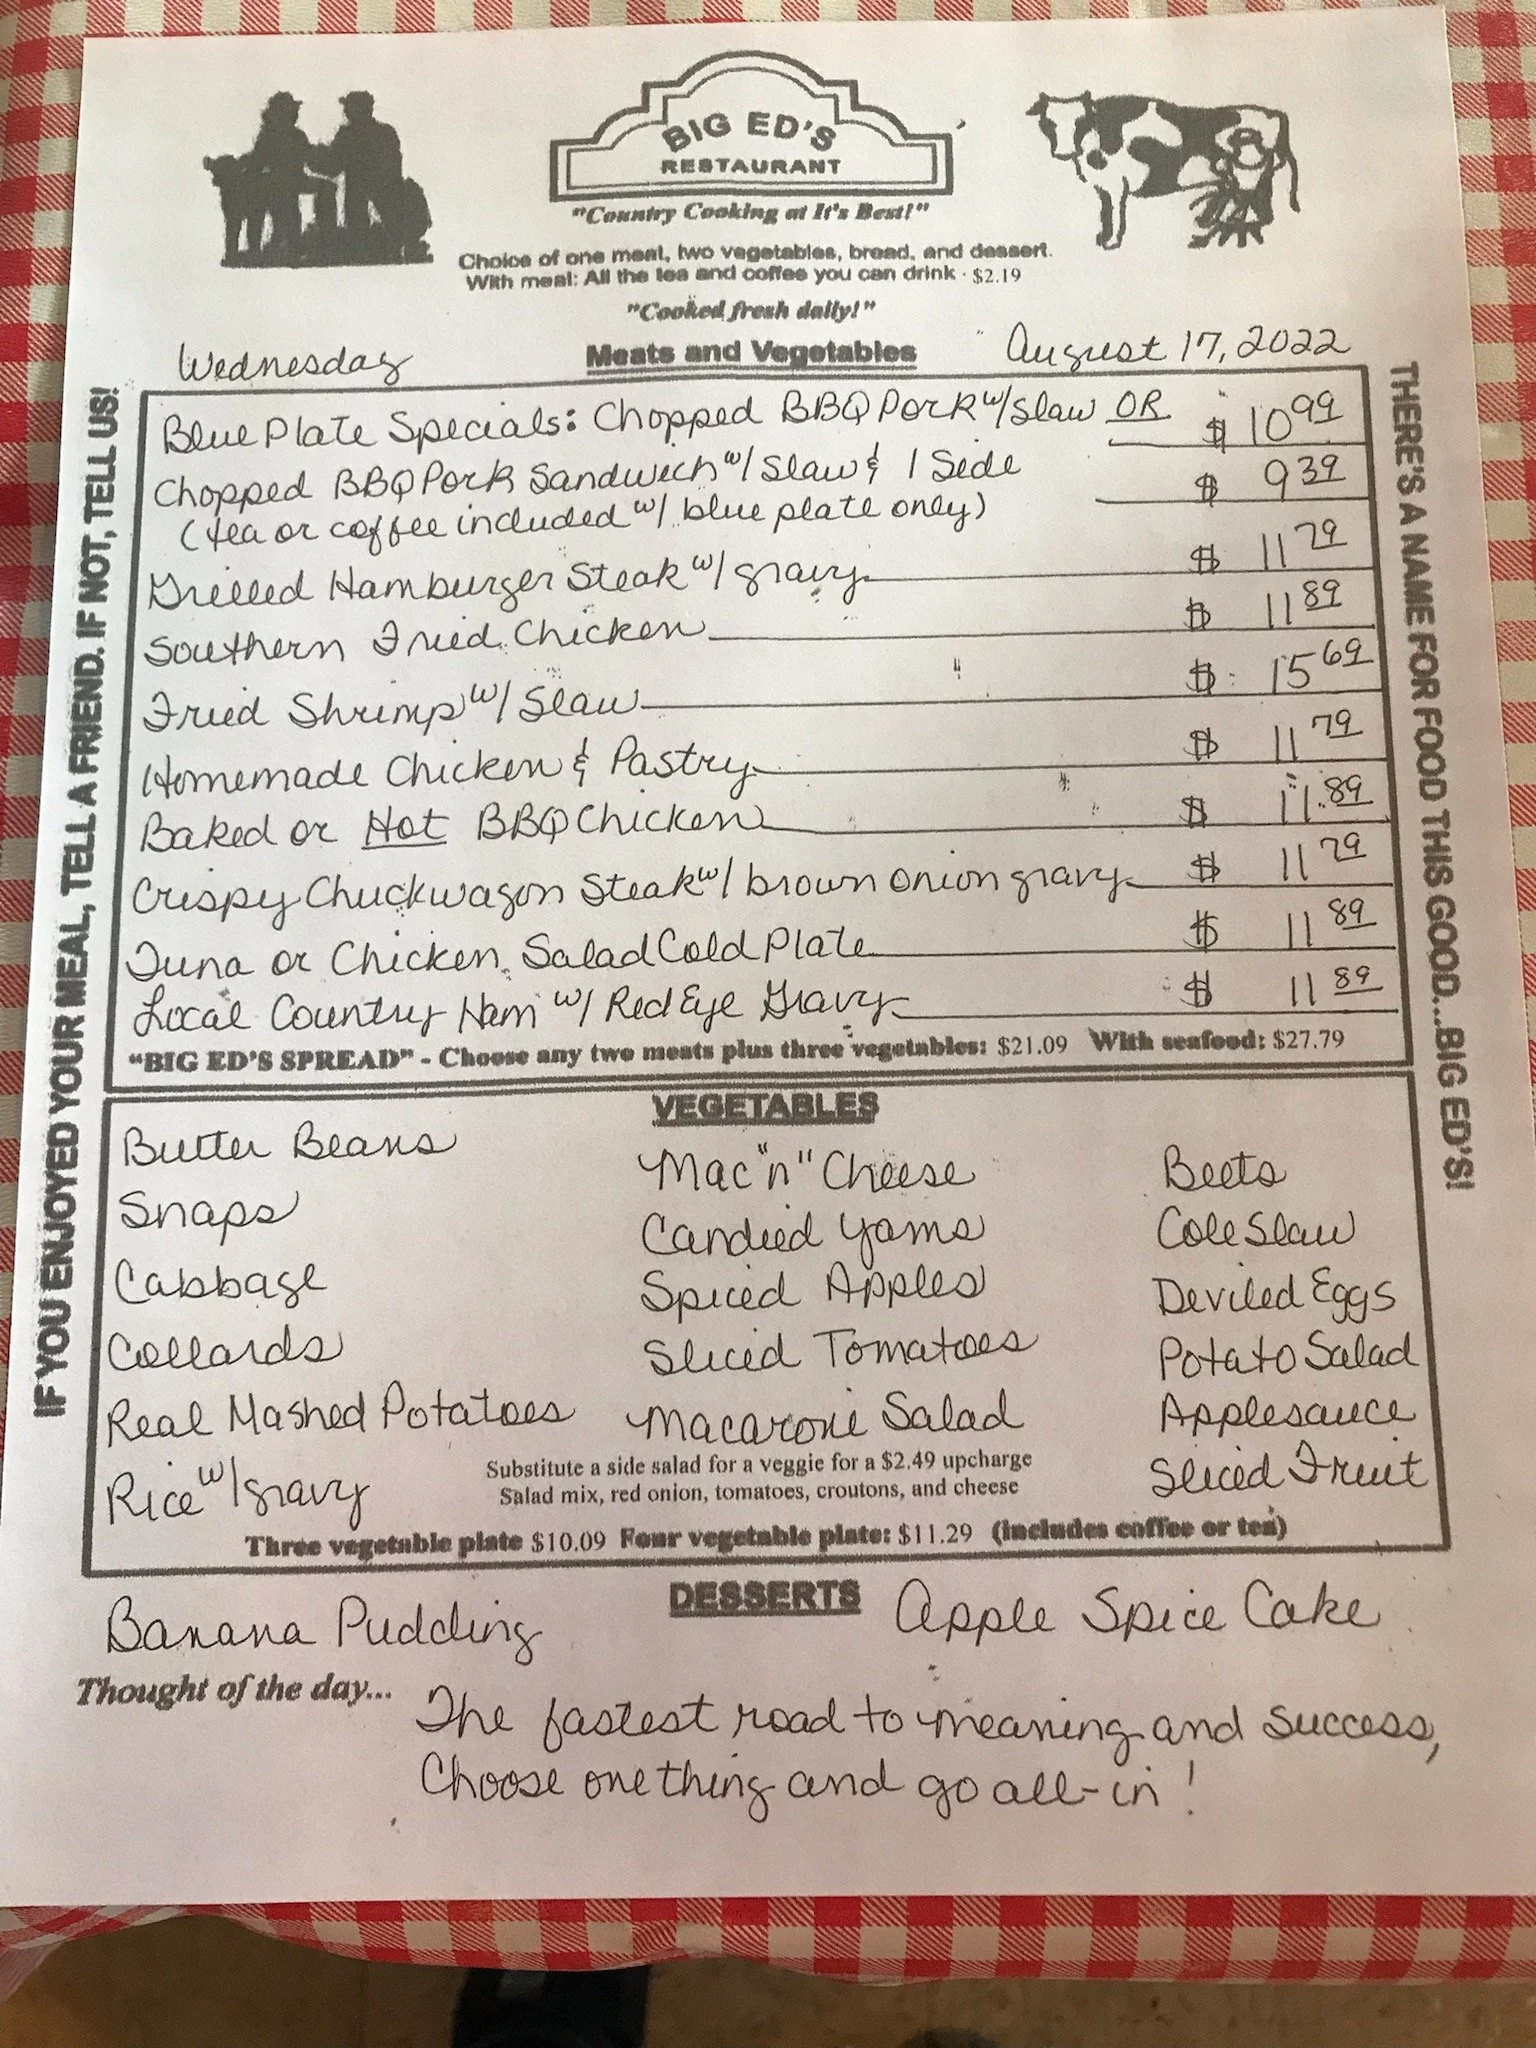 BIG ED'S
RESTAURANT
"Country Cooking at It's Best!"
Choice of one meat, two vegetables, bread, and dessert.
With meal: All the tea and coffee you can drink · $2.19
"Cooked fresh daily!"
Wednesday
Meats and Vegetables
August 17, 2022
IF YOU ENJOYED YOUR MEAL, TELL A FRIEND. IF NOT, TELL US!
Blue Plate Specials: Chopped BBQ Pork w/ Slaw OR $ 10 99
Chopped BBQ Pork Sandwich w/ Slaw & 1 Side $ 9 39
(tea or coffee included w/ blue plate only)
Grilled Hamburger Steak w/ gravy $ 11 79
Southern Fried Chicken $ 11 89
Fried Shrimp w/ Slaw $ 15 69
Homemade Chicken & Pastry $ 11 79
Baked or Hot BBQ Chicken $ 11.89
Crispy Chuckwagon Steak w/ brown onion gravy $ 11 79
Tuna or Chicken Salad Cold Plate $ 11 89
Local Country Ham w/ Red Eye Gravy $ 11 89
"BIG ED'S SPREAD" - Choose any two meats plus three vegetables: $21.09 With seafood: $27.79
THERE'S A NAME FOR FOOD THIS GOOD...BIG ED'S!
VEGETABLES
Butter Beans
Snaps
Cabbage
Collards
Real Mashed Potatoes
Rice w/ gravy
Mac "n" Cheese
Candied Yams
Spiced Apples
Sliced Tomatoes
Macaroni Salad
Beets
Cole Slaw
Deviled Eggs
Potato Salad
Applesauce
Sliced Fruit
Substitute a side salad for a veggie for a $2.49 upcharge
Salad mix, red onion, tomatoes, croutons, and cheese
Three vegetable plate $10.09 Four vegetable plate: $11.29 (includes coffee or tea)
DESSERTS
Banana Pudding
Apple Spice Cake
Thought of the day...
The fastest road to meaning and success,
Choose one thing and go all-in!